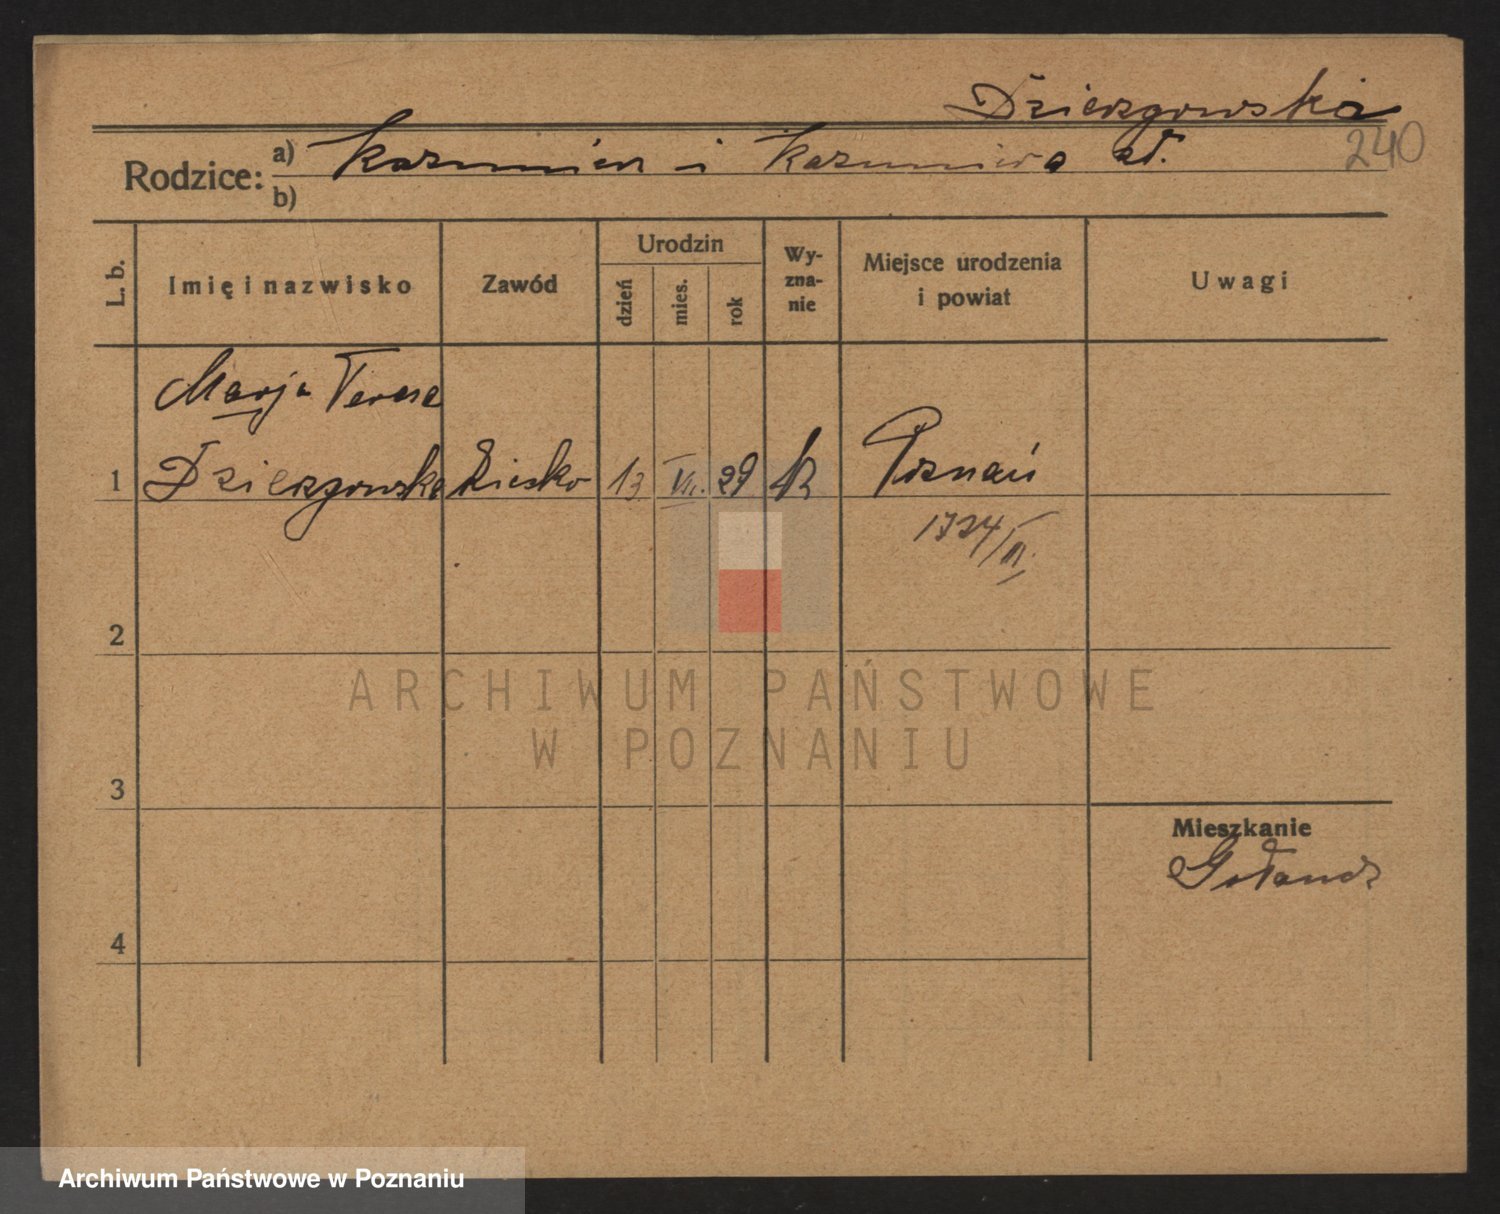 Dzierzgowska
240
Rodzice: a) Kazimierz i Kazimiera zł.
b)
L. b. Imię i nazwisko Zawód Urodzin dzień mies. rok Wy-zna-nie Miejsce urodzenia i powiat Uwagi
Marja Teresa
1 Dzierzgowska Dziecko 13 VII. 29 Poznań
1724/III.
2
ARCHIWUM PAŃSTWOWE
W POZNANIU
3
Mieszkanie
Gołańcz
4
Archiwum Państwowe w Poznaniu